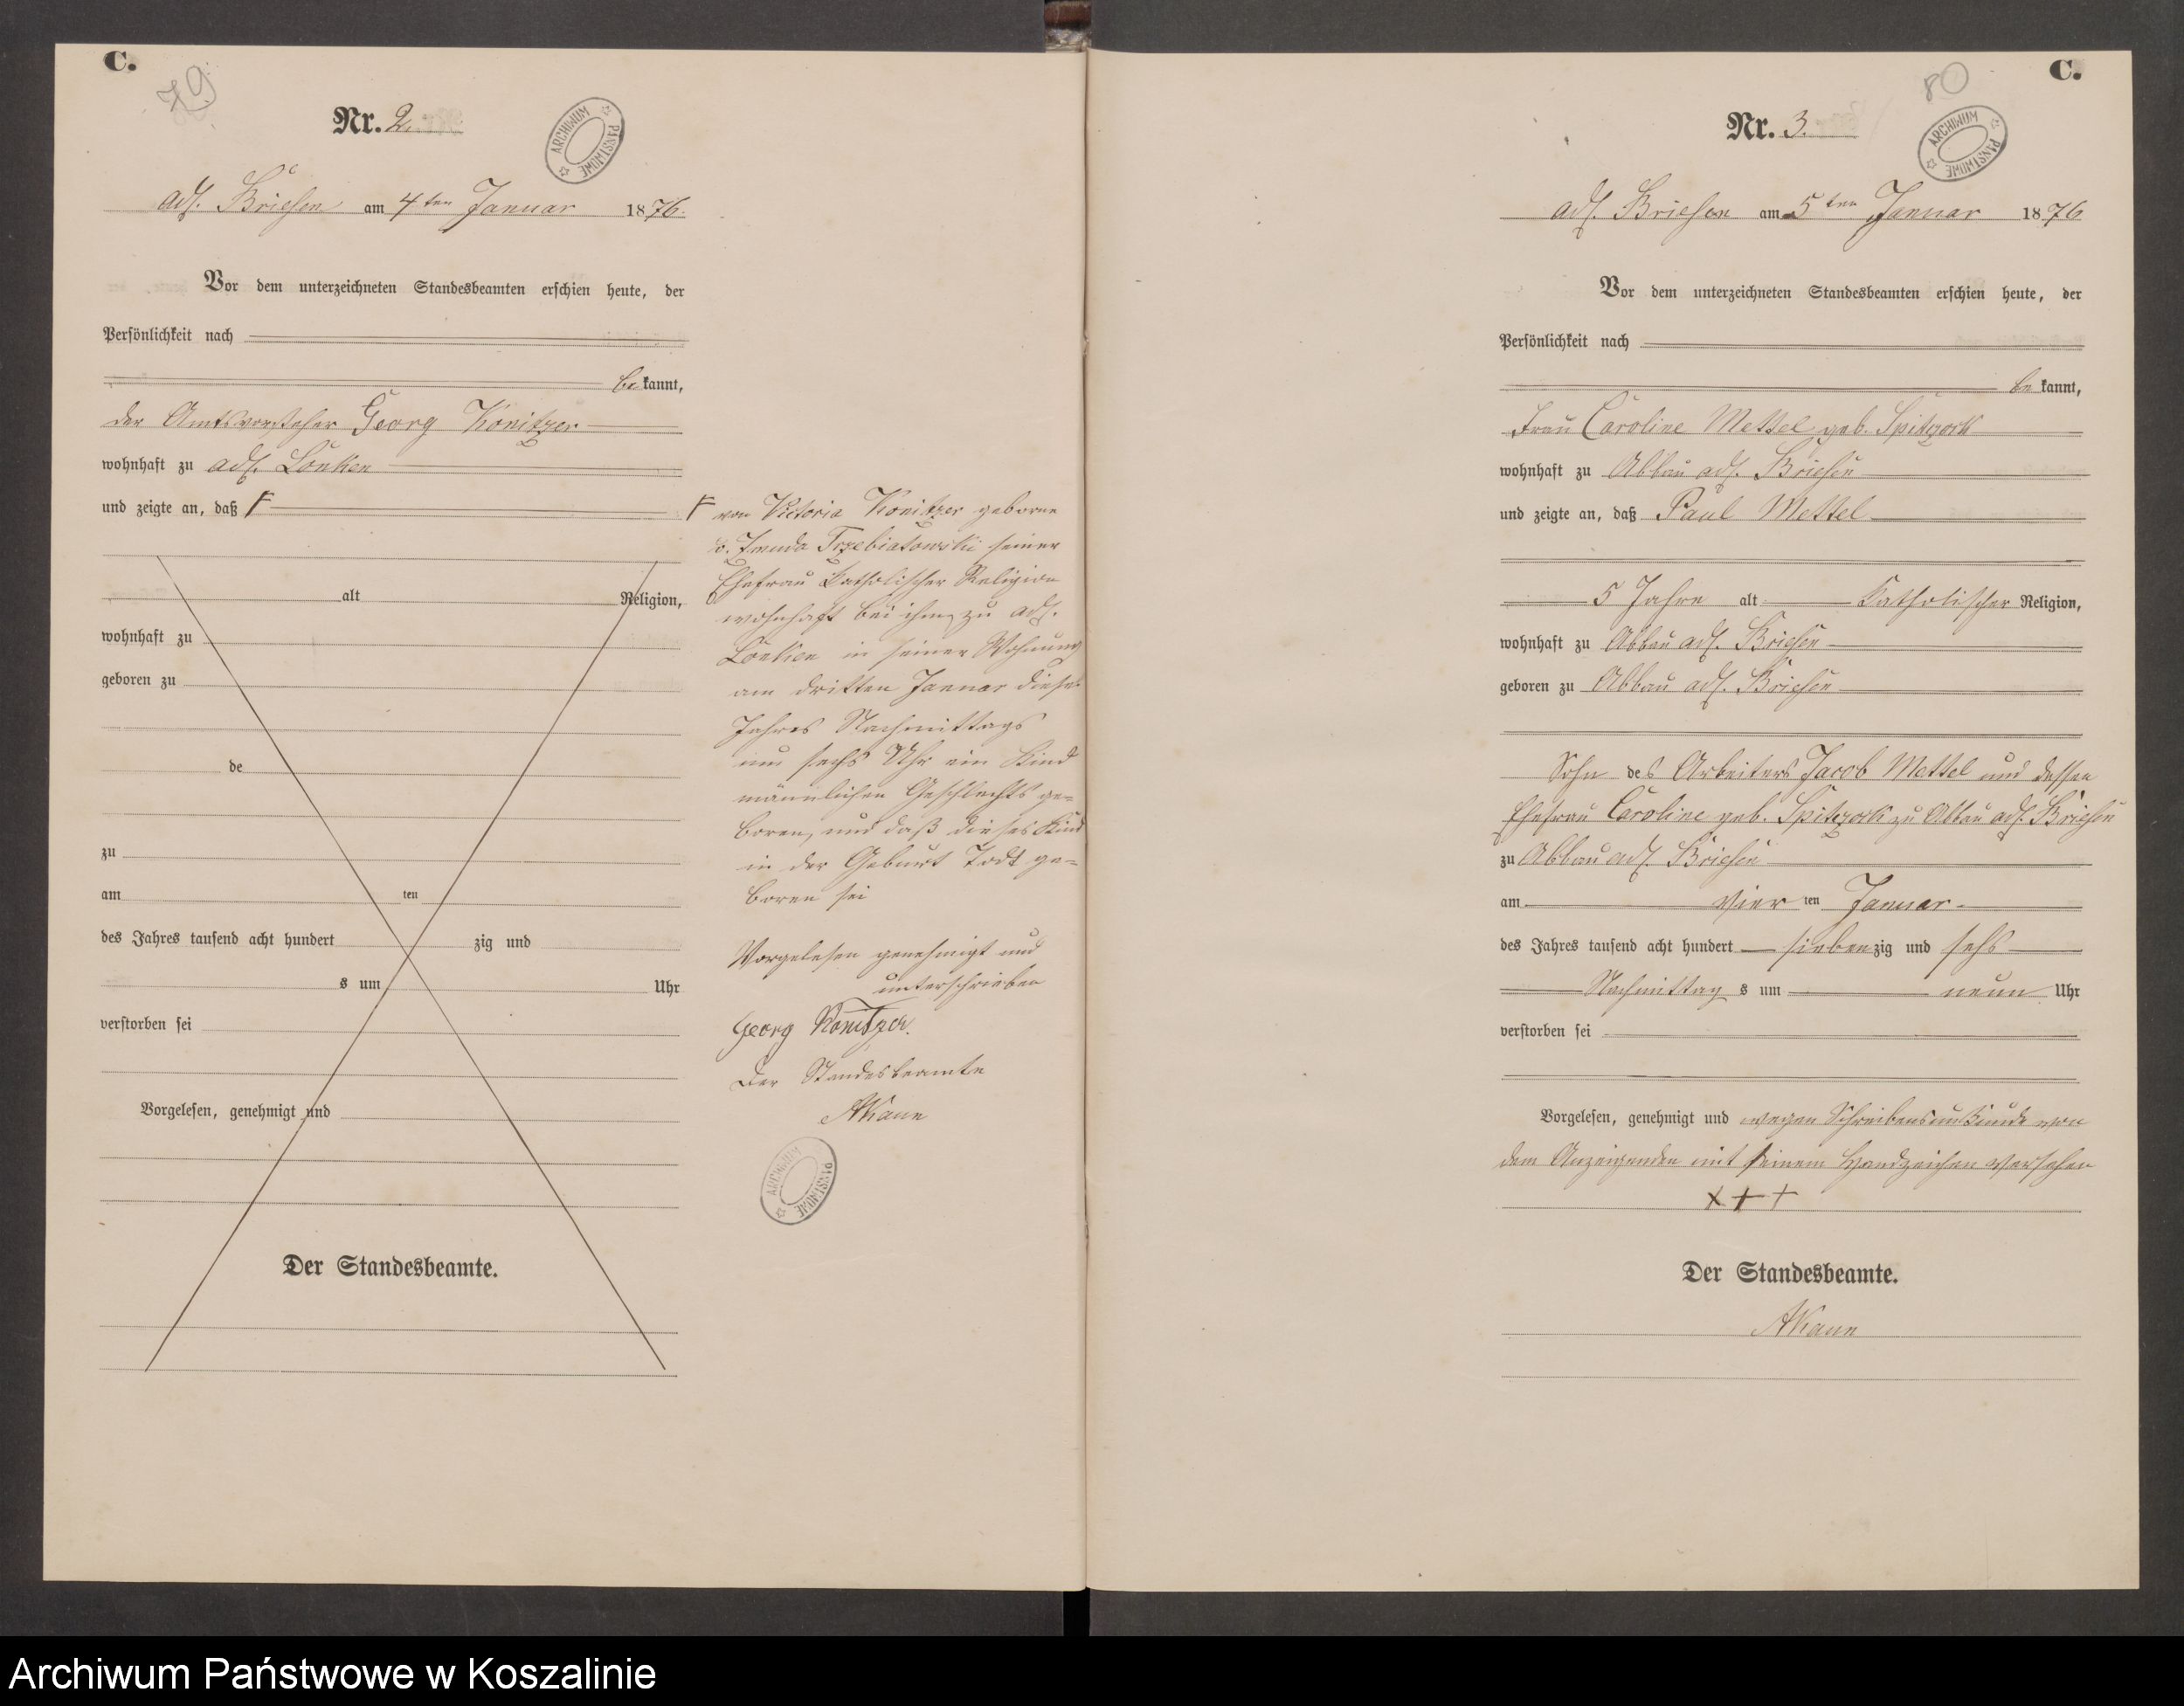 C.
79
Nr. 2.
ARCHIWUM PAŃSTWOWE
adl. Briesen am 4ten Januar 1876.
Vor dem unterzeichneten Standesbeamten erschien heute, der
Persönlichkeit nach
bekannt,
der Amtsvorsteher Georg Konitzer
wohnhaft zu adl. Lonken
und zeigte an, daß
alt Religion,
wohnhaft zu
geboren zu
de
zu
am ten
des Jahres tausend acht hundert zig und
s um Uhr
verstorben sei
Vorgelesen, genehmigt und
Der Standesbeamte.
von Victoria Konitzer geborne
v. Zmuda Trzebiatowski seiner
Ehefrau Katholischer Religion
wohnhaft bei ihm zu adl.
Lonken in seiner Wohnung
am dritten Januar dieses
Jahres Nachmittags
um sechs Uhr ein Kind
männlichen Geschlechts ge-
boren, und daß dieses Kind
in der Geburt Todt ge-
boren sei
Vorgelesen genehmigt und
unterschrieben
Georg Konitzer.
Der Standesbeamte
ARCHIWUM PAŃSTWOWE
C.
80
Nr. 3.
ARCHIWUM PAŃSTWOWE
adl. Briesen am 5ten Januar 1876
Vor dem unterzeichneten Standesbeamten erschien heute, der
Persönlichkeit nach
bekannt,
Frau Caroline Mettel geb. Spitzock
wohnhaft zu Abbau adl. Briesen
und zeigte an, daß Paul Mettel
5 Jahre alt Katholischer Religion,
wohnhaft zu Abbau adl. Briesen
geboren zu Abbau adl. Briesen
Sohn des Arbeiters Jacob Mettel und dessen
Ehefrau Caroline geb. Spitzock zu Abbau adl. Briesen
zu Abbau adl. Briesen
am vier ten Januar
des Jahres tausend acht hundert siebenzig und sechs
Nachmittag s um neun Uhr
verstorben sei
Vorgelesen, genehmigt und wegen Schreibensunkunde von
dem Anzeigenden mit seinem Handzeichen versehen
+++
Der Standesbeamte.
Archiwum Państwowe w Koszalinie